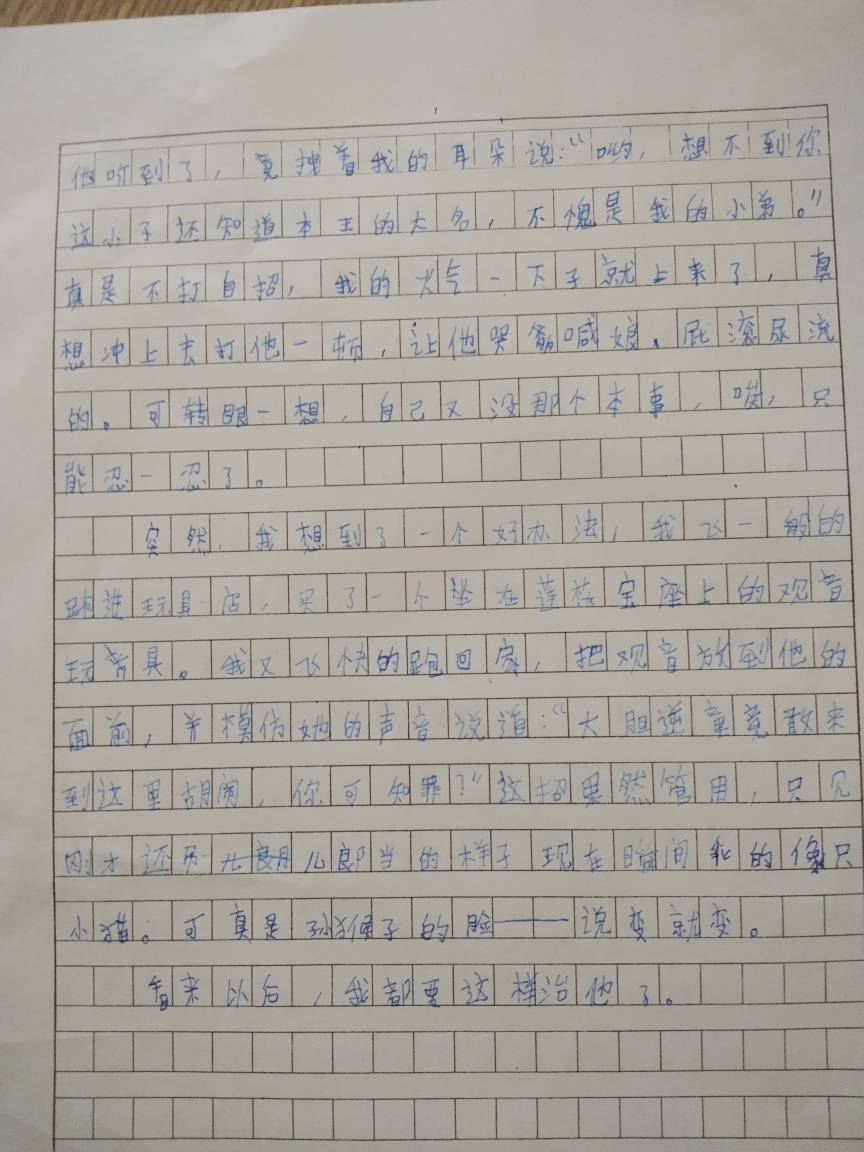 他听到了，竟拽着我的耳朵说：“哟，想不到你
这小子还知道本王的大名，不愧是我的小弟。”
真是不打自招，我的火气一下子就上来了，真
想冲上去打他一顿，让他哭爹喊娘。屁滚尿流
的。可转眼一想，自己又没那个本事，唉，只
能忍一忍了。
突然，我想到了一个好办法，我飞一般的
跑进玩具店，买了一个坐在莲花宝座上的观音
玩具。我又飞快的跑回家，把观音放到他的
面前，并模仿她的声音说道：“大胆逆童竟敢来
到这里胡闹，你可知罪？”这招果然管用，只见
刚才还儿郎当的样子现在瞬间乖的像只
小猫。可真是孙猴子的脸——说变就变。
看来以后，我都要这样治他了。